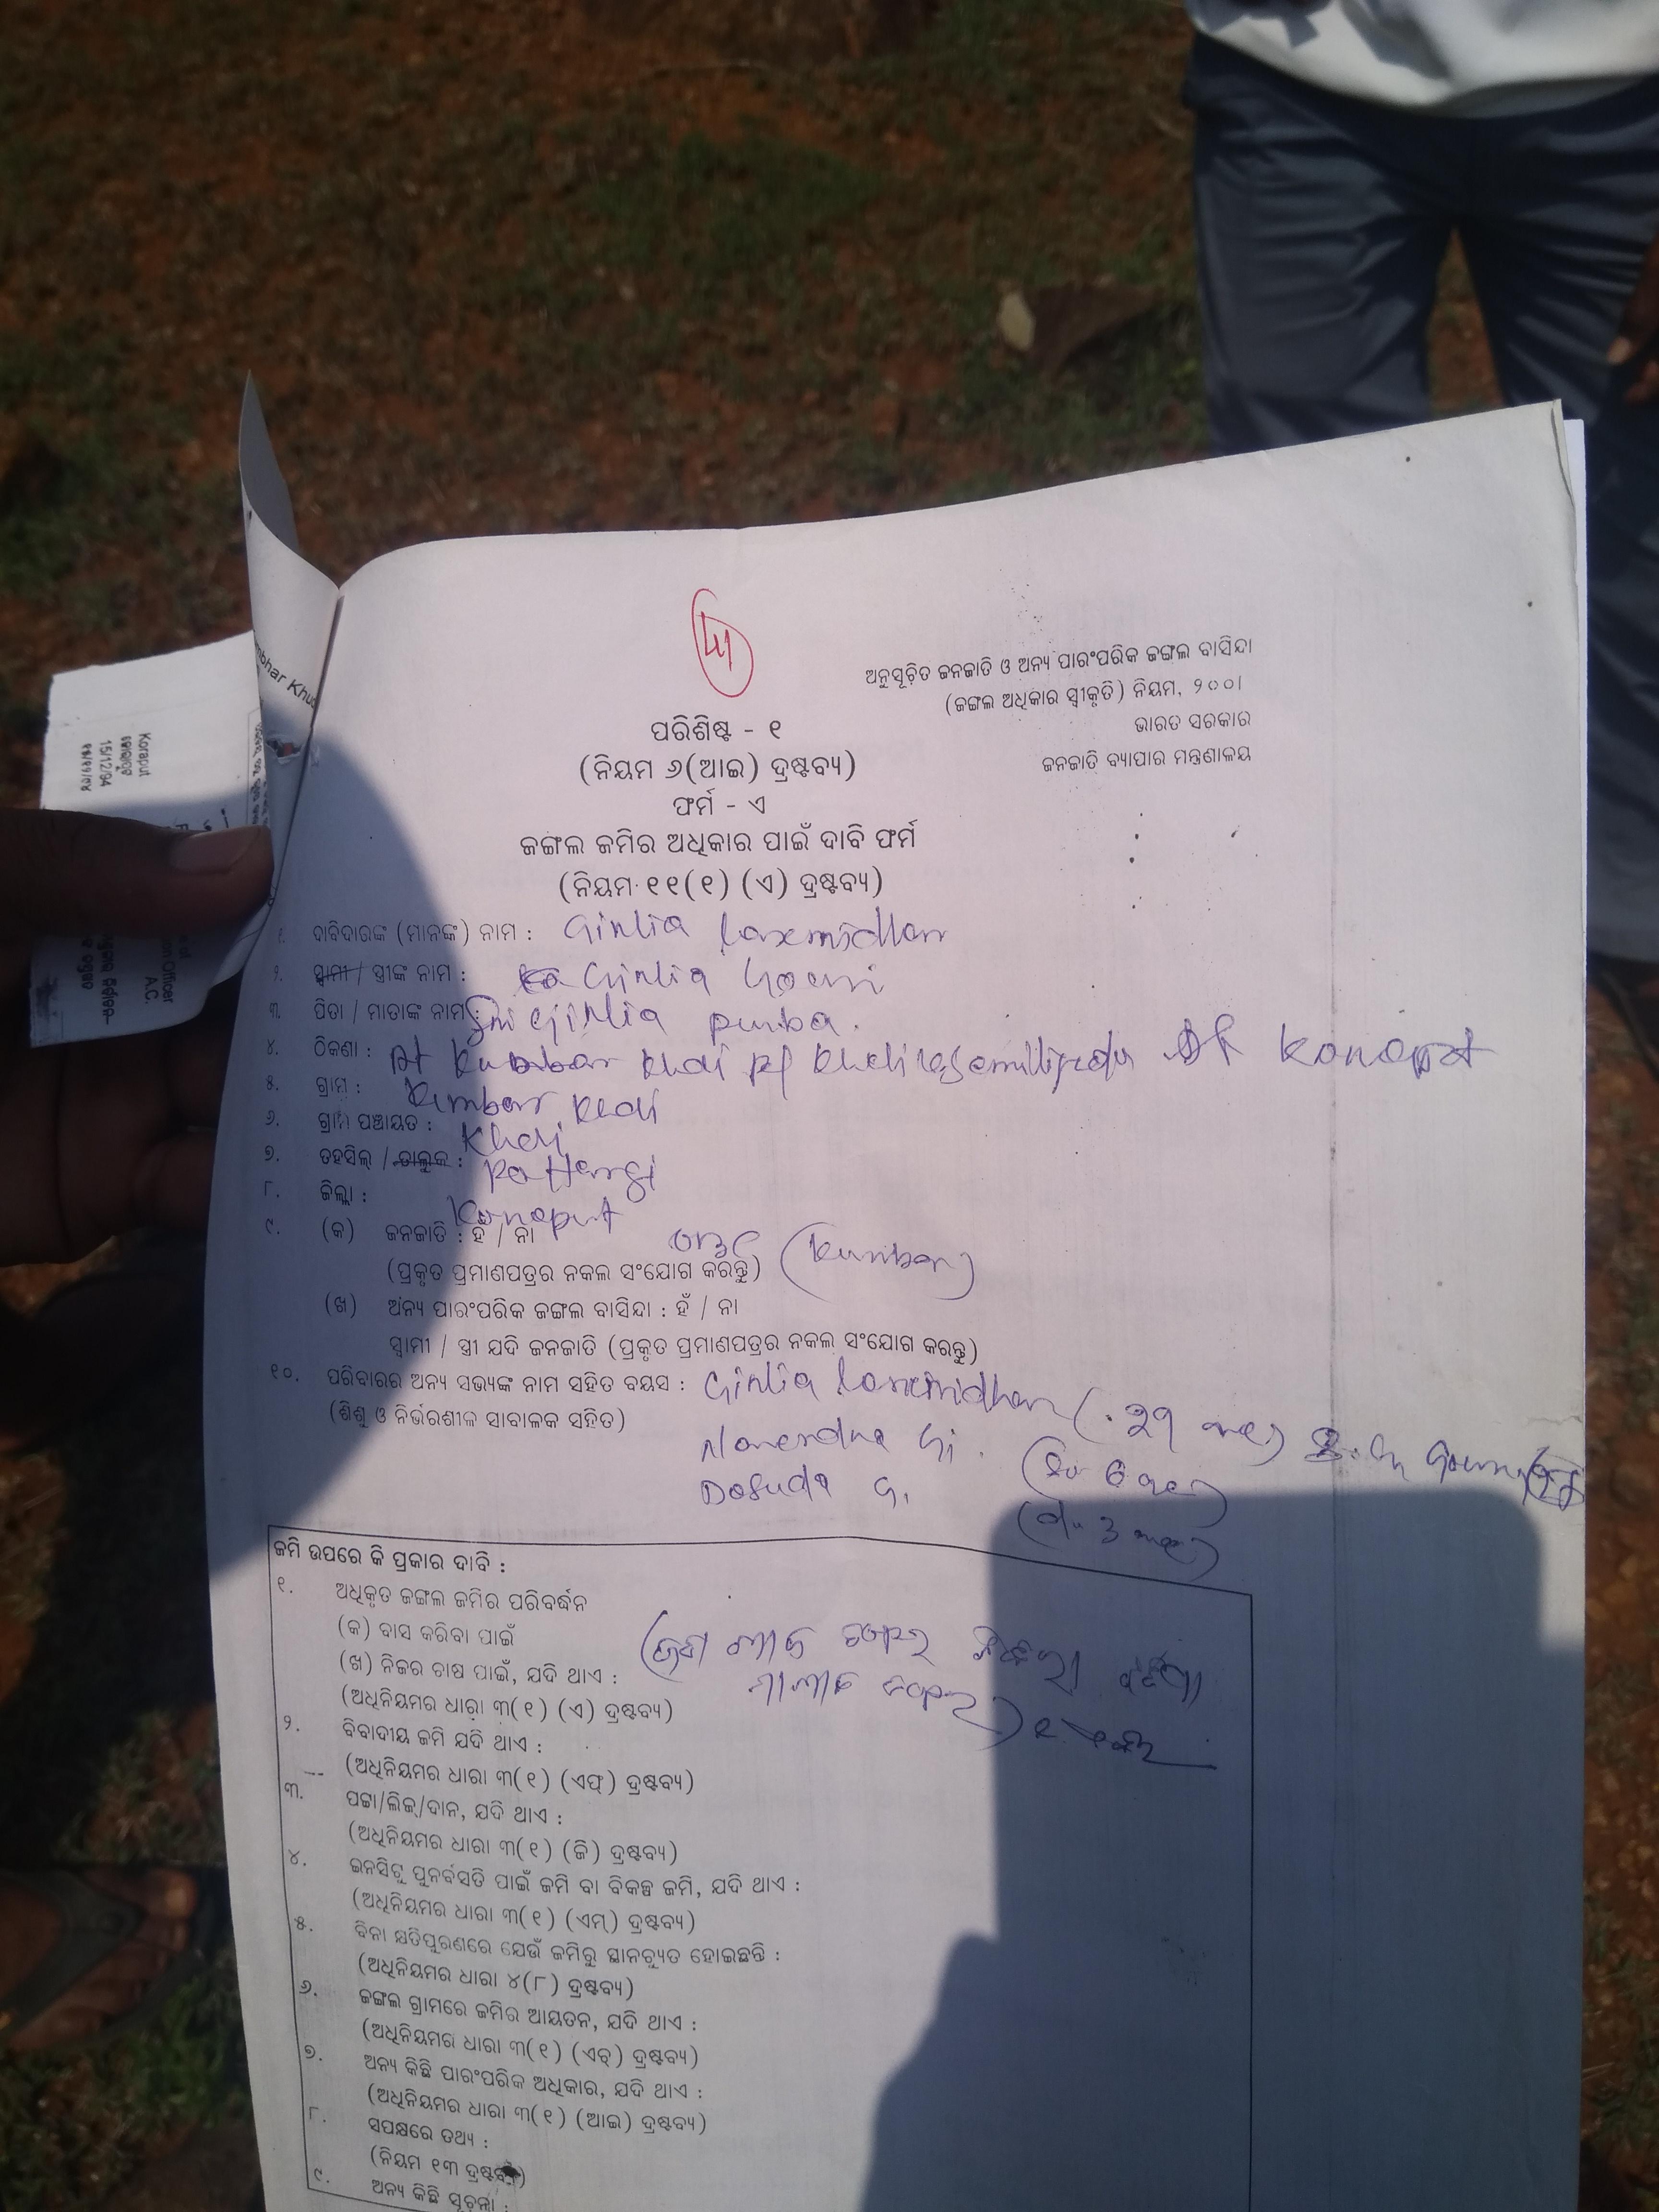 ଅନୁସୂଚିତ ଜନଜାତି ଓ ଅନ୍ୟ ପାରଂପରିକ ଜଙ୍ଗଲ ବାସିନ୍ଦା
(ଜଙ୍ଗଲ ଅଧିକାର ସ୍ୱୀକୃତି) ନିୟମ, ୨୦୦୮
ଭାରତ ସରକାର
ଜନଜାତି ବ୍ୟାପାର ମନ୍ତ୍ରଣାଳୟ
ପରିଶିଷ୍ଟ - ୧
(ନିୟମ ୬(ଆଇ) ଦ୍ରଷ୍ଟବ୍ୟ)
ଫର୍ମ - ଏ
ଜଙ୍ଗଲ ଜମିର ଅଧିକାର ପାଇଁ ଦାବି ଫର୍ମ
(ନିୟମ ୧୧(୧) (ଏ) ଦ୍ରଷ୍ଟବ୍ୟ)
Koraput
15/12/94
୧. ଦାବିଦାରଙ୍କ (ମାନଙ୍କ) ନାମ : Girlia Laxmidhar
୨. ସ୍ୱାମୀ / ସ୍ତ୍ରୀଙ୍କ ନାମ : Girlia Gouri
୩. ପିତା / ମାତାଙ୍କ ନାମ : Sri Girlia purba.
୪. ଠିକଣା : At Kumbar Khai
୫. ଗ୍ରାମ : Kumbar Khai
୬. ଗ୍ରାମ ପଞ୍ଚାୟତ :
୭. ତହସିଲ୍ / ତାଲୁକ : Pottangi
୮. ଜିଲ୍ଲା : Koraput
୯. (କ) ଜନଜାତି : ହଁ / ନା OBC (Kumbar)
(ପ୍ରକୃତ ପ୍ରମାଣପତ୍ରର ନକଲ ସଂଯୋଗ କରନ୍ତୁ)
(ଖ) ଅନ୍ୟ ପାରଂପରିକ ଜଙ୍ଗଲ ବାସିନ୍ଦା : ହଁ / ନା
ସ୍ୱାମୀ / ସ୍ତ୍ରୀ ଯଦି ଜନଜାତି (ପ୍ରକୃତ ପ୍ରମାଣପତ୍ରର ନକଲ ସଂଯୋଗ କରନ୍ତୁ)
୧୦. ପରିବାରର ଅନ୍ୟ ସଭ୍ୟଙ୍କ ନାମ ସହିତ ବୟସ : Girlia Laxmidhar
(ଶିଶୁ ଓ ନିର୍ଭରଶୀଳ ସାବାଳକ ସହିତ) Narendra Gi.
ଜମି ଉପରେ କି ପ୍ରକାର ଦାବି :
୧. ଅଧିକୃତ ଜଙ୍ଗଲ ଜମିର ପରିବର୍ଦ୍ଧନ
(କ) ବାସ କରିବା ପାଇଁ
(ଖ) ନିଜର ଚାଷ ପାଇଁ, ଯଦି ଥାଏ :
(ଅଧିନିୟମର ଧାରା ୩(୧) (ଏ) ଦ୍ରଷ୍ଟବ୍ୟ)
୨. ବିବାଦୀୟ ଜମି ଯଦି ଥାଏ :
(ଅଧିନିୟମର ଧାରା ୩(୧) (ଏଫ୍) ଦ୍ରଷ୍ଟବ୍ୟ)
୩. ପଟ୍ଟା/ଲିଜ୍/ଦାନ, ଯଦି ଥାଏ :
(ଅଧିନିୟମର ଧାରା ୩(୧) (ଜି) ଦ୍ରଷ୍ଟବ୍ୟ)
୪. ଇନସିଟୁ ପୁନର୍ବସତି ପାଇଁ ଜମି ବା ବିକଳ୍ପ ଜମି, ଯଦି ଥାଏ :
(ଅଧିନିୟମର ଧାରା ୩(୧) (ଏମ୍) ଦ୍ରଷ୍ଟବ୍ୟ)
୫. ବିନା କ୍ଷତିପୁରଣରେ ଯେଉଁ ଜମିରୁ ସ୍ଥାନଚ୍ୟୁତ ହୋଇଛନ୍ତି :
(ଅଧିନିୟମର ଧାରା ୪(୮) ଦ୍ରଷ୍ଟବ୍ୟ)
୬. ଜଙ୍ଗଲ ଗ୍ରାମରେ ଜମିର ଆୟତନ, ଯଦି ଥାଏ :
(ଅଧିନିୟମର ଧାରା ୩(୧) (ଏଚ୍) ଦ୍ରଷ୍ଟବ୍ୟ)
୭. ଅନ୍ୟ କିଛି ପାରଂପରିକ ଅଧିକାର, ଯଦି ଥାଏ :
(ଅଧିନିୟମର ଧାରା ୩(୧) (ଆଇ) ଦ୍ରଷ୍ଟବ୍ୟ)
୮. ସପକ୍ଷରେ ତଥ୍ୟ :
(ନିୟମ ୧୩ ଦ୍ରଷ୍ଟବ୍ୟ)
୯. ଅନ୍ୟ କିଛି ସୂଚନା :